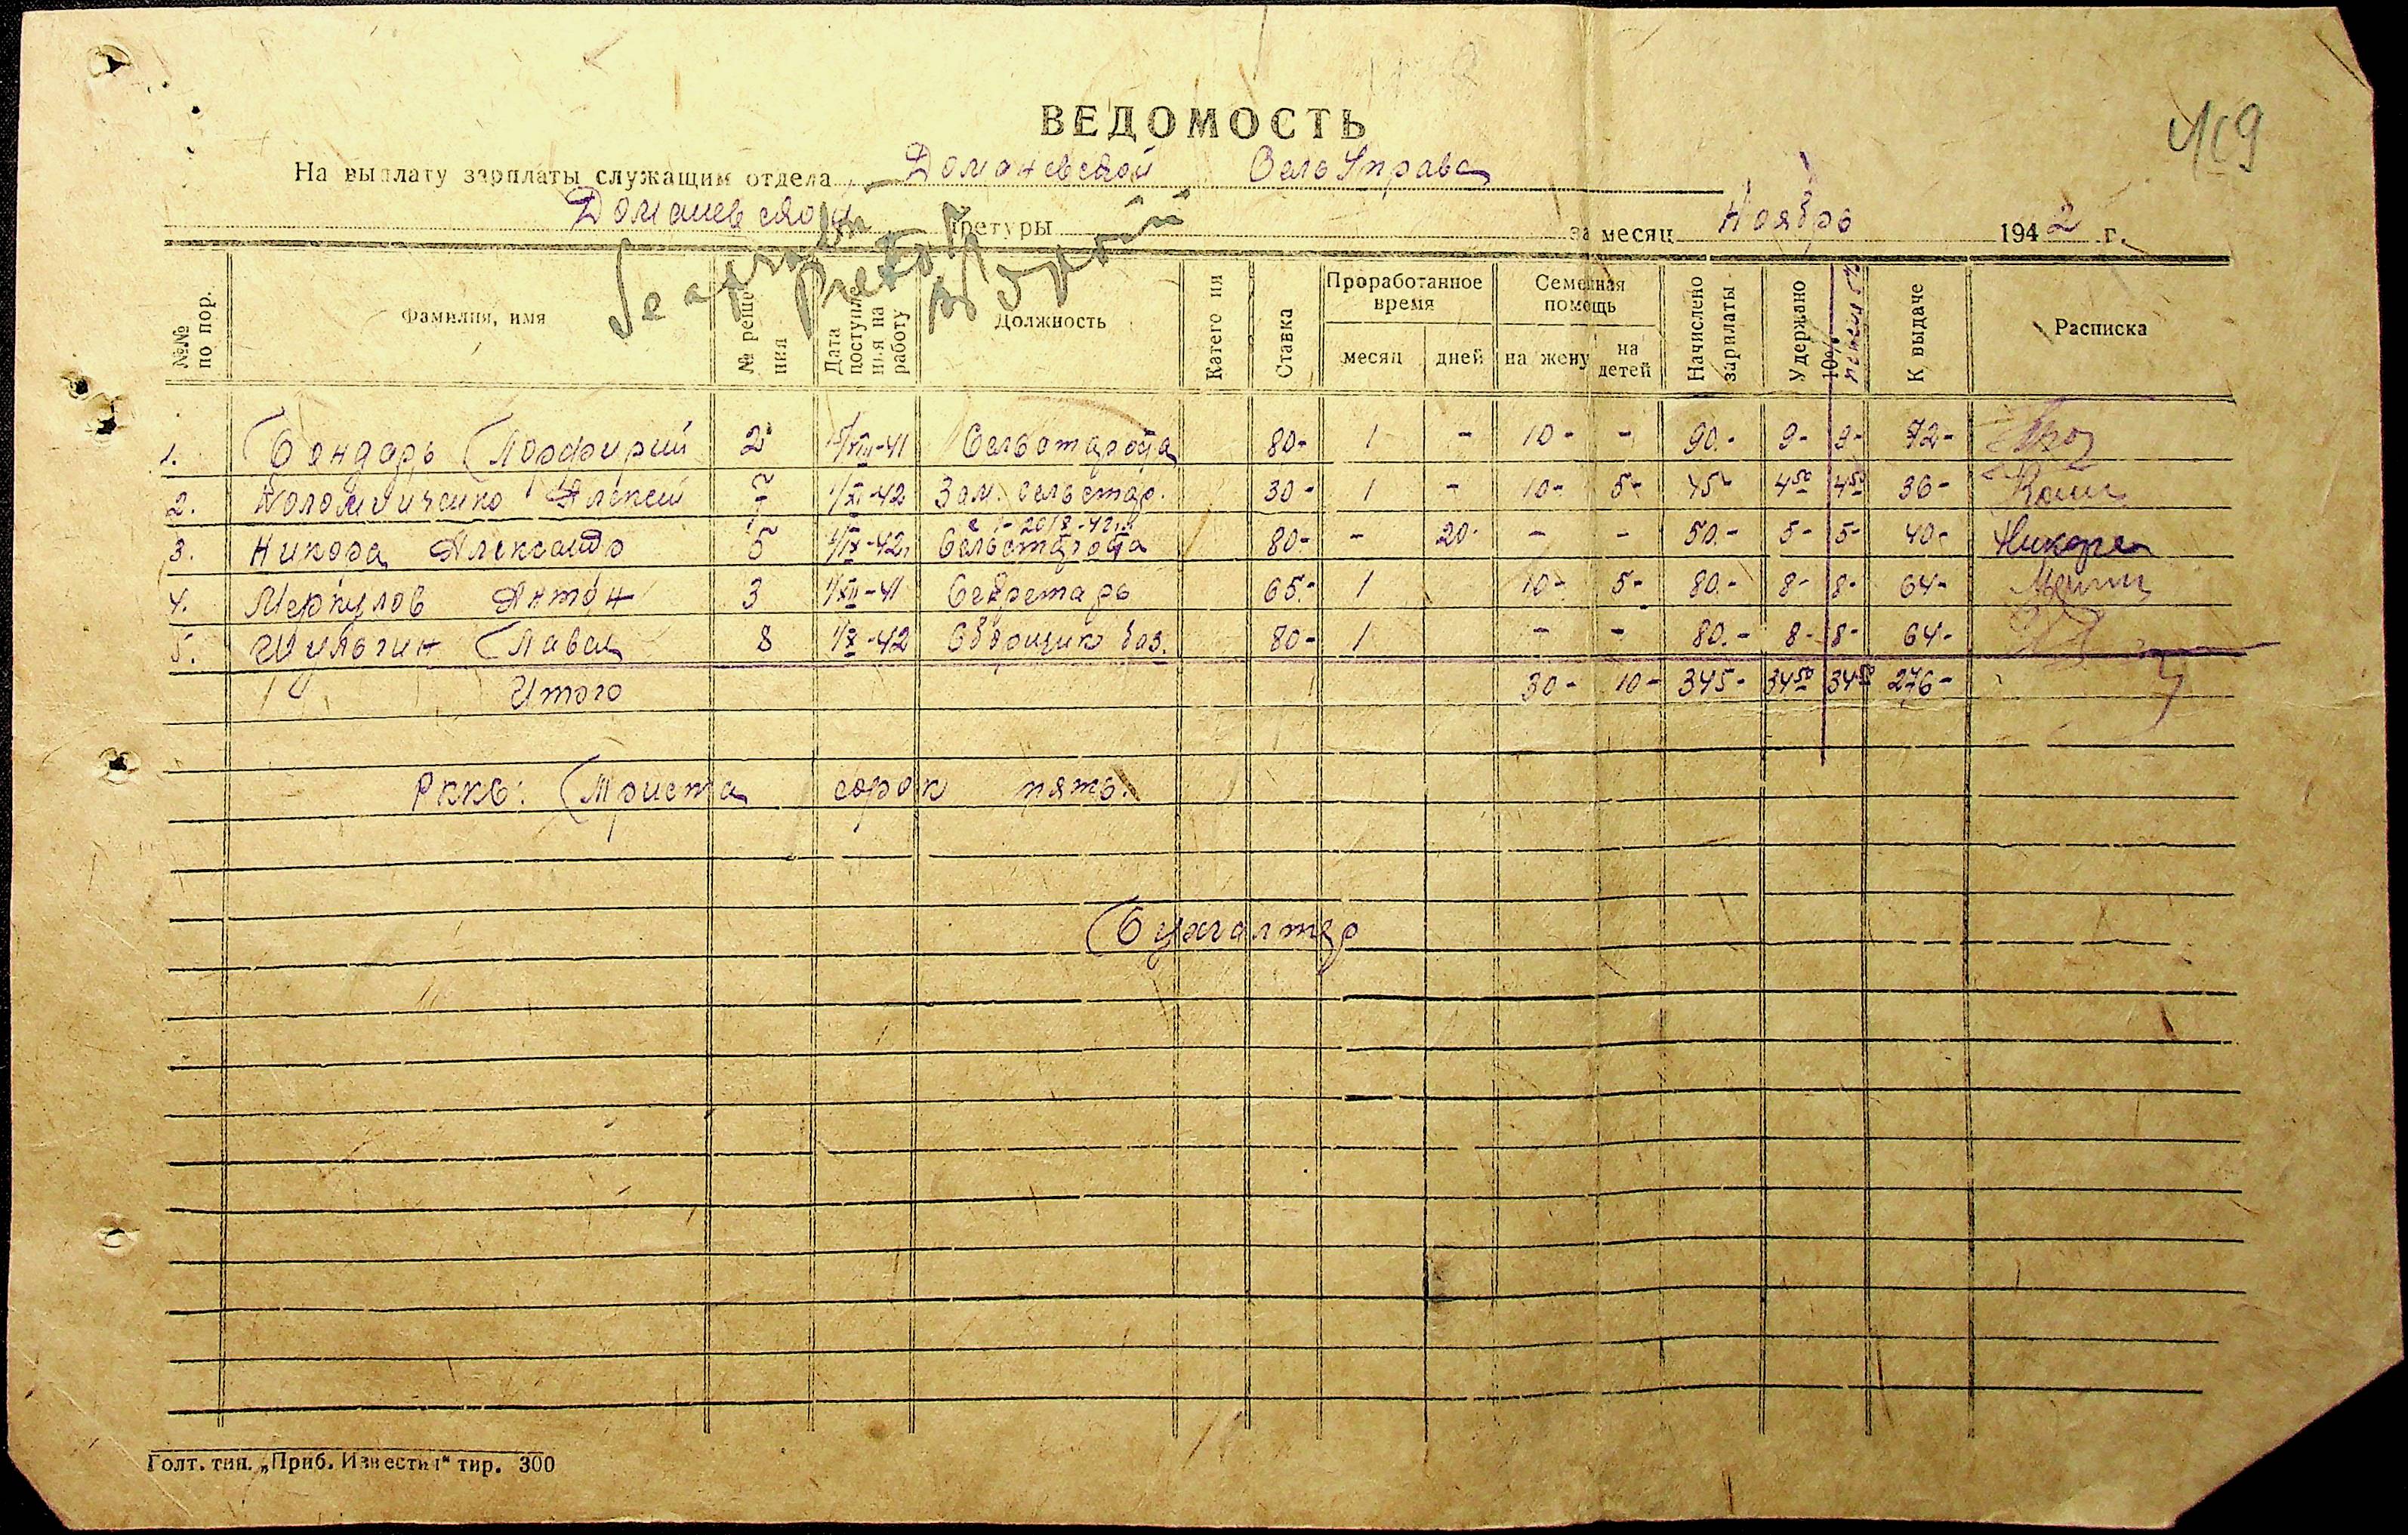 ВЕДОМОСТЬ
На выплату зарплаты служащим отдела Домановской СельУправа
Доманевской Претуры за месяц Ноябрь 1942 г.
№№ по пор. Фамилия, имя № решения Дата поступленья на работу Должность Категория Ставка Проработанное время месяц дней Семейная помощь на жену на детей Начислено зарплаты Удержано 10% К выдаче Расписка
1. Бондарь Порфирий 2 1/XII-41 Сельстароста 80- 1 - 10- - 90.- 9- 9- 72-
2. Коломийченко Алексей 7 1/XI-42 Зам. сельстар. 30- 1 - 10- 5- 45- 4 50 4 50 36-
с 1-20/X-42
3. Никора Александр 5 1/IX-42 Сельстароста 80- - 20- - - 50.- 5- 5- 40- Никора
4. Меркулов Антон 3 1/XII-41 Секретарь 65.- 1 10- 5- 80.- 8- 8- 64-
5. Шульгин Павел 8 1/X-42 Сборщик баз. 80- 1 - - 80.- 8- 8- 64-
Итого 30- 10- 345- 34 50 34 50 276-
РККС: Триста сорок пять.
Бухгалтер
Голт. тип. „Приб. Известия" тир. 300